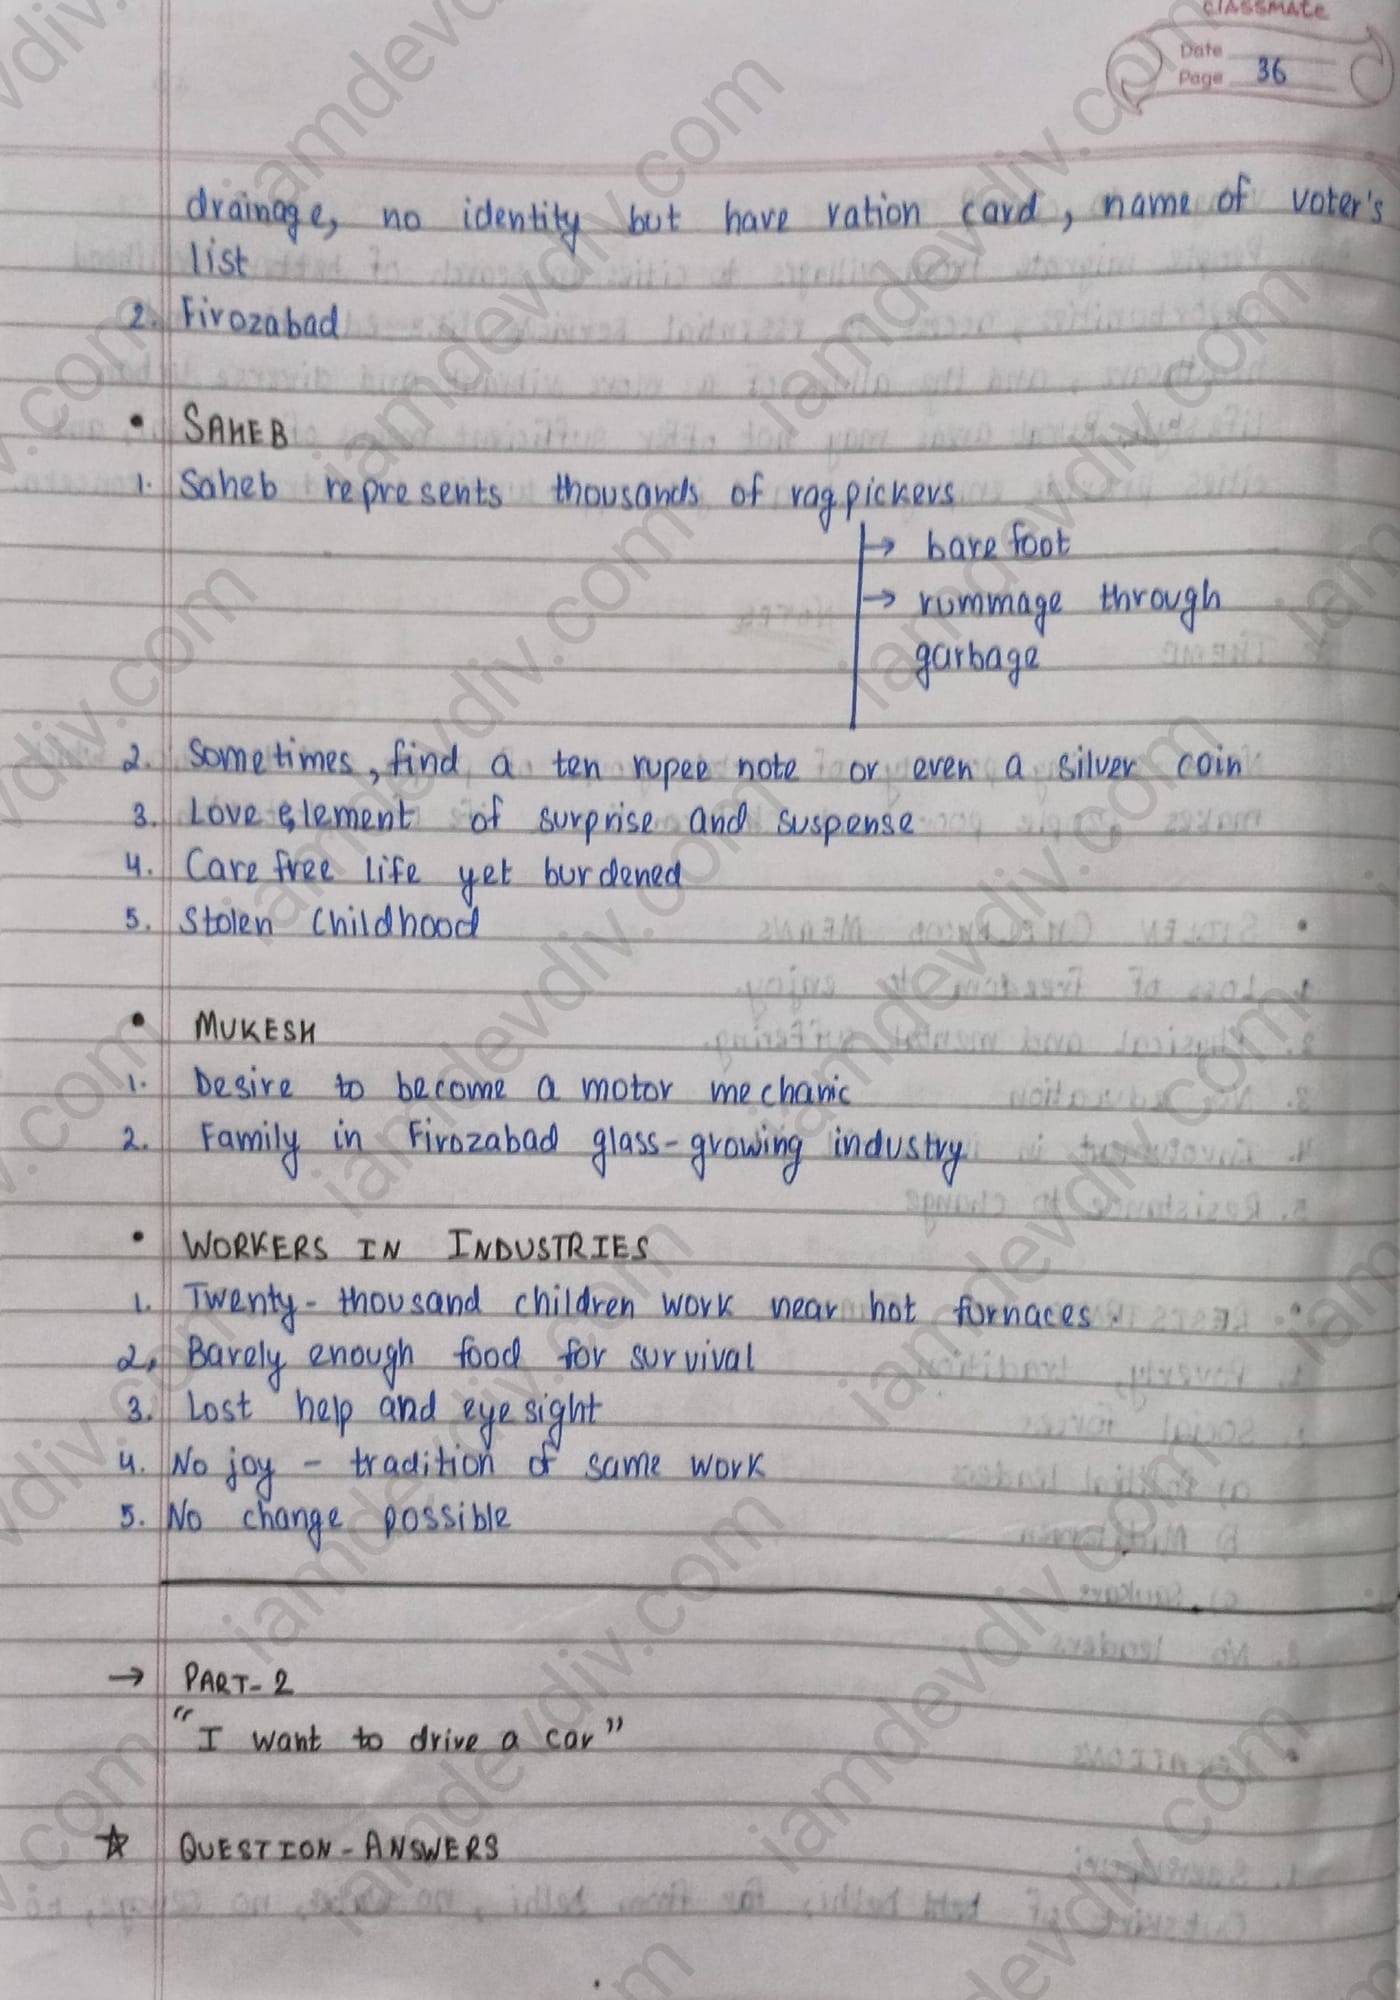 classmate
Date
Page 36
drainage, no identity but have ration card, name of voter's
list
2. Firozabad
• SAHEB
1. Saheb represents thousands of ragpickers
→ barefoot
→ rummage through
garbage
2. Sometimes, find a ten rupee note or even a silver coin
3. Love element of surprise and suspense
4. Care free life yet burdened
5. Stolen Childhood
• MUKESH
1. Desire to become a motor mechanic
2. Family in Firozabad glass-growing industry
• WORKERS IN INDUSTRIES
1. Twenty-thousand children work near hot furnaces.
2. Barely enough food for survival
3. Lost help and eyesight
4. No joy - tradition of same work
5. No change possible
→ PART-2
"I want to drive a car"
☆ QUESTION-ANSWERS
iamdevdiv.com